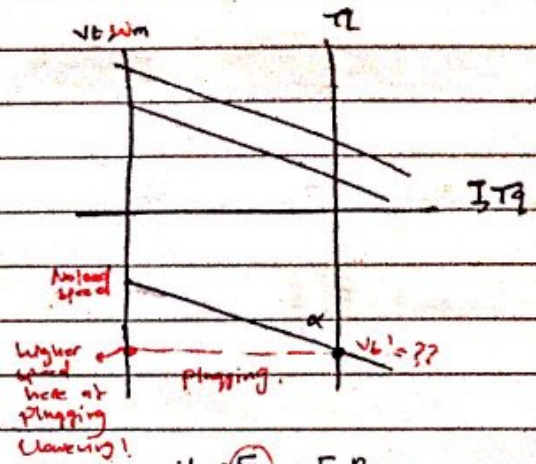 Vt, ωm
TL
I, Tq
No load
speed
α
Vt' = ??
Higher
speed
here at
plugging
Lowering!
plugging.